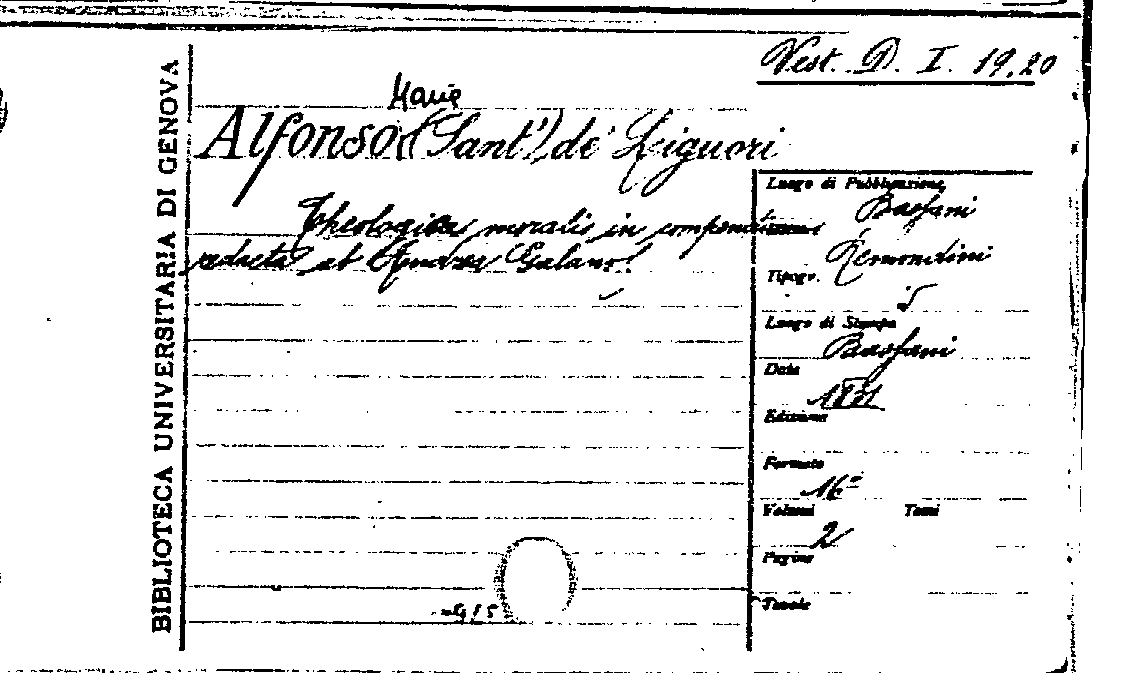 Vest. D. I. 19.20
BIBLIOTECA UNIVERSITARIA DI GENOVA
Maria
Alfonso (Sant') de' Liguori
Theologia moralis in compendium
redacta ab Andrea Galano!
Luogo di Pubblicazione
Bassani
Remondini
Tipogr.
Luogo di Stampa
Bassani
Data
1831
Edizione
Formato
16°
Volumi Tomi
2
Pagine
Tavole